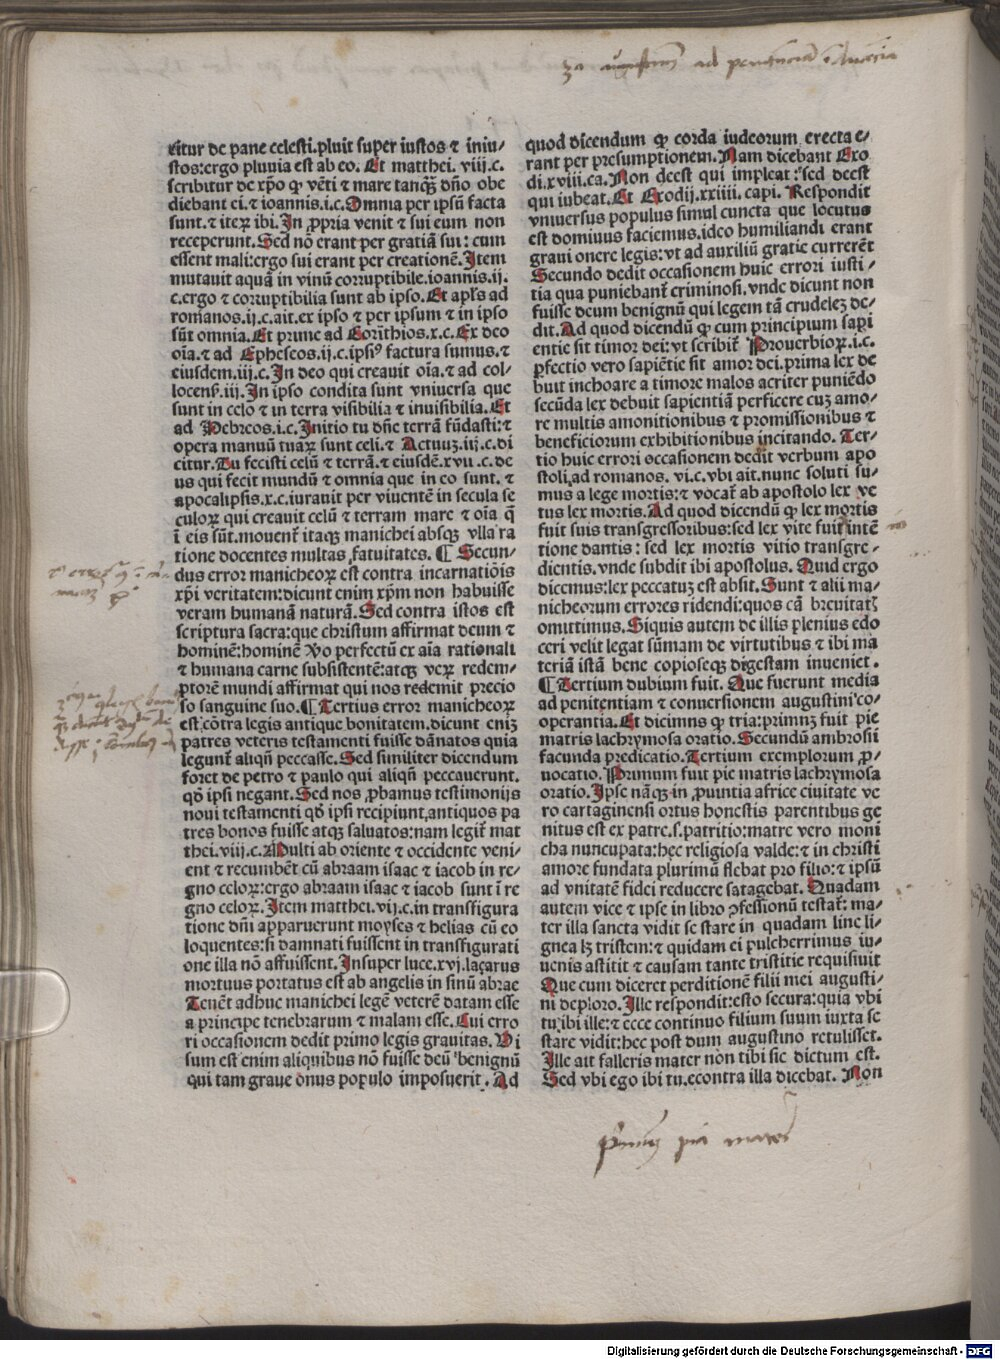 citur de pane celesti.pluit super iustos ⁊ iniu-
stos:ergo pluuia est ab eo. Et matthei. viij.c.
scribitur de xp̄o qꝫ vēti ⁊ mare tanq̄ꝫ dn̄o obe
diebant ei.⁊ ioannis.i.c.Omnia per ipsū facta
sunt.⁊ iteꝝ ibi.In ꝓpria venit ⁊ sui eum non
receperunt.Sed nō erant per gratiā sui: cum
essent mali:ergo sui erant per creationē.Item
mutauit aquā in vinū corruptibile.ioannis.ij.
c.ergo ⁊ corruptibilia sunt ab ipso. Et apl̄s ad
romanos.ij.c.ait.ex ipso ⁊ per ipsum ⁊ in ipso
sūt omnia.Et prime ad Corīthios.x.c.Ex deo
oīa.⁊ ad Ephescos.ij.c.ipsiꝰ factura sumus.⁊
eiusdem.iij.c.In deo qui creauit oīa.⁊ ad col-
locens̄.iij.In ipso condita sunt vniuersa que
sunt in celo ⁊ in terra visibilia ⁊ inuisibilia.Et
ad Hebreos.i.c.Initio tu dn̄e terrā fūdasti:⁊
opera manuū tuaꝝ sunt celi.⁊ Actuuꝫ.iij.c.di
citur.Tu fecisti celū ⁊ terrā.⁊ eiusdē.xvij.c.de
us qui fecit mundū ⁊ omnia que in eo sunt.⁊
apocalipsis.x.c.iurauit per viuentē in secula se
culoꝝ qui creauit celū ⁊ terram mare ⁊ oīa q̄
ī eis sūt.mouent̄ itaqꝫ manichei absqꝫ vlla ra
tione docentes multas fatuitates. ¶ Secun-
dus error manicheoꝝ est contra incarnatiōis
xp̄i veritatem:dicunt enim xp̄m non habuisse
veram humanā naturā.Sed contra istos est
scriptura sacra:que christum affirmat deum ⁊
hominē:hominē ꝟo perfectū ex aīa rationali
⁊ humana carne subsistentē:atqꝫ veꝝ redem-
ptorē mundi affirmat qui nos redemit precio
so sanguine suo.¶Tertius error manicheoꝝ
est cōtra legis antique bonitatem.dicunt eniꝫ
patres veteris testamenti fuisse dānatos quia
legunt̄ aliqn̄ peccasse.Sed similiter dicendum
foret de petro ⁊ paulo qui aliqn̄ peccauerunt.
qd̄ ipsi negant.Sed nos ꝓbamus testimonijs
noui testamenti qd̄ ipsi recipiunt,antiquos pa
tres bonos fuisse atqꝫ saluatos:nam legit̄ mat
thei.viij.c.Multi ab oriente ⁊ occidente veni-
ent ⁊ recumbēt cū abraam isaac ⁊ iacob in re-
gno celoꝝ:ergo abraam isaac ⁊ iacob sunt ī re
gno celoꝝ.Item matthei.vij.c.in transfigura
tione dn̄i apparuerunt moyses ⁊ helias cū eo
loquentes:si damnati fuissent in transfigurati
one illa nō affuissent.Insuper luce.xvj.laçarus
mortuus portatus est ab angelis in sinū abrae
Tenēt adhuc manichei legē veterē datam esse
a principe tenebrarum ⁊ malam esse.Cui erro
ri occasionem dedit primo legis grauitas.Vi
sum est enim aliquibus nō fuisse deū benignū
qui tam graue onus populo imposuerit.Ad
quod dicendum qꝫ corda iudeorum erecta e-
rant per presumptionem.Nam dicebant Exo
di.xviij.ca.Non deest qui impleat:sed deest
qui iubeat.Et Exodij.xxiiij. capi. Respondit
vniuersus populus simul cuncta que locutus
est domiuus faciemus.ideo humiliandi erant
graui onere legis:vt ad auxiliū gratie currerēt
Secundo dedit occasionem huic errori iusti-
tia qua puniebant̄ criminosi.vnde dicunt non
fuisse deum benignū qui legem tā crudeleꝫ de-
dit.Ad quod dicendū qꝫ cum principium sapi
entie sit timor dei:vt scribit̄ Prouerbioꝝ.i.c.
ꝑfectio vero sapiētie sit amor dei.prima lex de
buit inchoare a timore malos acriter puniēdo
secūda lex debuit sapientiā perficere cuꝫ amo-
re multis amonitionibus ⁊ promissionibus ⁊
beneficiorum exhibitionibus incitando. Ter-
tio huic errori occasionem dedit verbum apo
stoli,ad romanos. vi.c.vbi ait.nunc soluti su-
mus a lege mortis:⁊ vocat̄ ab apostolo lex ve
tus lex mortis.Ad quod dicendū qꝫ lex mortis
fuit suis transgressoribus:sed lex vite fuit intē
tione dantis: sed lex mortis vitio transgre-
dientis.vnde subdit ibi apostolus. Quid ergo
dicemus:lex peccatuꝫ est absit.Sunt ⁊ alii ma-
nicheorum errores ridendi:quos cā breuitatꝭ
omittimus.Siquis autem de illis plenius edo
ceri velit legat sūmam de virtutibus ⁊ ibi ma
teriā istā bene copioseqꝫ digestam inueniet.
¶Tertium dubium fuit. Que fuerunt media
ad penitentiam ⁊ conuersionem augustini co-
operantia.Et dicimns qꝫ tria:primnꝫ fuit pie
matris lachrymosa oratio.Secundū ambrosii
facunda predicatio.Tertium exemplorum ꝓ-
uocatio.Primum fuit pie matris lachrymosa
oratio.Ipse nāqꝫ in ꝓuintia africe ciuitate ve
ro cartaginensi ortus honestis parentibus ge
nitus est ex patre.s.patritio:matre vero moni
cha nuncupata:hec religiosa valde:⁊ in christi
amore fundata plurimū flebat pro filio:⁊ ipsū
ad vnitatē fidei reducere satagebat. Quadam
autem vice ⁊ ipse in libro ꝓfessionū testat̄: ma-
ter illa sancta vidit se stare in quadam line li-
gnea lꝫ tristem:⁊ quidam ei pulcherrimus iu-
uenis astitit ⁊ causam tante tristitie requisiuit
Que cum diceret perditionē filii mei augusti-
ni deploro.Ille respondit:esto secura:quia vbi
tu,ibi ille:⁊ ecce continuo filium suum iuxta se
stare vidit:hec post dum augustino retulisset.
Ille ait falleris mater non tibi sic dictum est.
Sed vbi ego ibi tu.econtra illa dicebat. Non
pia
Digitalisierung gefördert durch die Deutsche Forschungsgemeinschaft - DFG